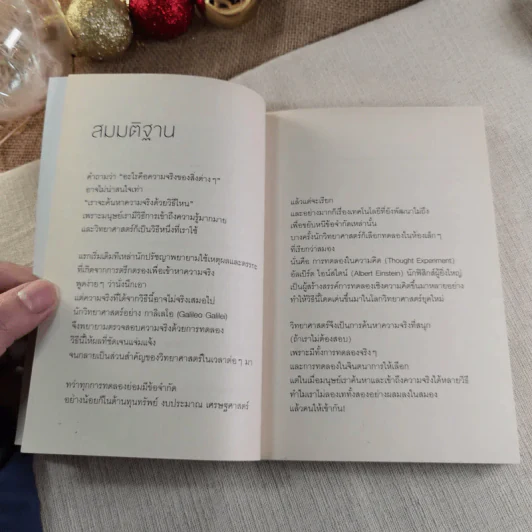 สมมติฐาน
คำถามว่า "อะไรคือความจริงของสิ่งต่างๆ"
อาจไม่น่าสนใจเท่า
"เราจะค้นหาความจริงด้วยวิธีไหน"
เพราะมนุษย์เรามีวิธีการเข้าถึงความรู้มากมาย
และวิทยาศาสตร์ก็เป็นวิธีหนึ่งที่เราใช้
แรกเริ่มเดิมทีเหล่านักปรัชญาพยายามใช้เหตุผลและตรรกะ
ที่เกิดจากการตรึกตรองเพื่อเข้าหาความจริง
พูดง่ายๆ ว่านั่งนึกเอา
แต่ความจริงที่ได้จากวิธีนี้อาจไม่จริงเสมอไป
นักวิทยาศาสตร์อย่าง กาลิเลโอ (Galileo Galilei)
จึงพยายามตรวจสอบความจริงด้วยการทดลอง
วิธีนี้ให้ผลที่ชัดเจนแจ่มแจ้ง
จนกลายเป็นส่วนสำคัญของวิทยาศาสตร์ในเวลาต่อๆ มา
ทว่าทุกการทดลองย่อมมีข้อจำกัด
อย่างน้อยก็ในด้านทุนทรัพย์ งบประมาณ เศรษฐศาสตร์
แล้วแต่จะเรียก
และอย่างมากก็เรื่องเทคโนโลยีที่ยังพัฒนาไม่ถึง
เพื่อขยับหนีข้อจำกัดเหล่านั้น
บางครั้งนักวิทยาศาสตร์ก็เลือกทดลองในห้องเล็กๆ
ที่เรียกว่าสมอง
นั่นคือ การทดลองในความคิด (Thought Experiment)
อัลเบิร์ต ไอน์สไตน์ (Albert Einstein) นักฟิสิกส์ผู้ยิ่งใหญ่
เป็นผู้สร้างสรรค์การทดลองเชิงความคิดขึ้นมาหลายอย่าง
ทำให้วิธีนี้โดดเด่นขึ้นมาในโลกวิทยาศาสตร์ยุคใหม่
วิทยาศาสตร์จึงเป็นการค้นหาความจริงที่สนุก
(ถ้าเราไม่ต้องสอบ)
เพราะมีทั้งการทดลองจริงๆ
และการทดลองในจินตนาการให้เลือก
แต่ในเมื่อมนุษย์เราค้นหาและเข้าถึงความจริงได้หลายวิธี
ทำไมเราไม่ลองเททั้งสองอย่างผสมลงในสมอง
แล้วคนให้เข้ากัน!